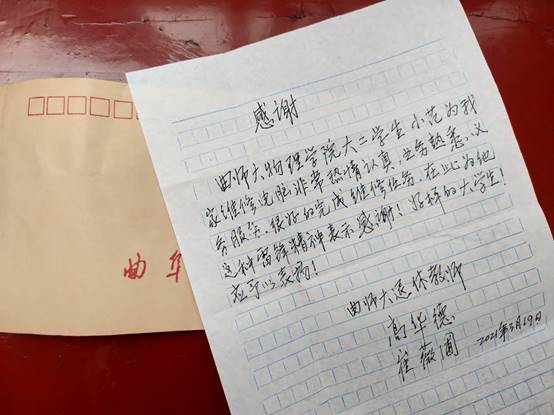 曲阜
感谢
曲师大物理学院大二学生小范为我
家维修电脑非常热情认真,业务熟悉、义
务服务、很好的完成维修任务,在此为他
这种雷锋精神表示感谢!好样的大学生!
应予以表扬!
曲师大退休教师
高华德
崔薇圃
2021年3月19日